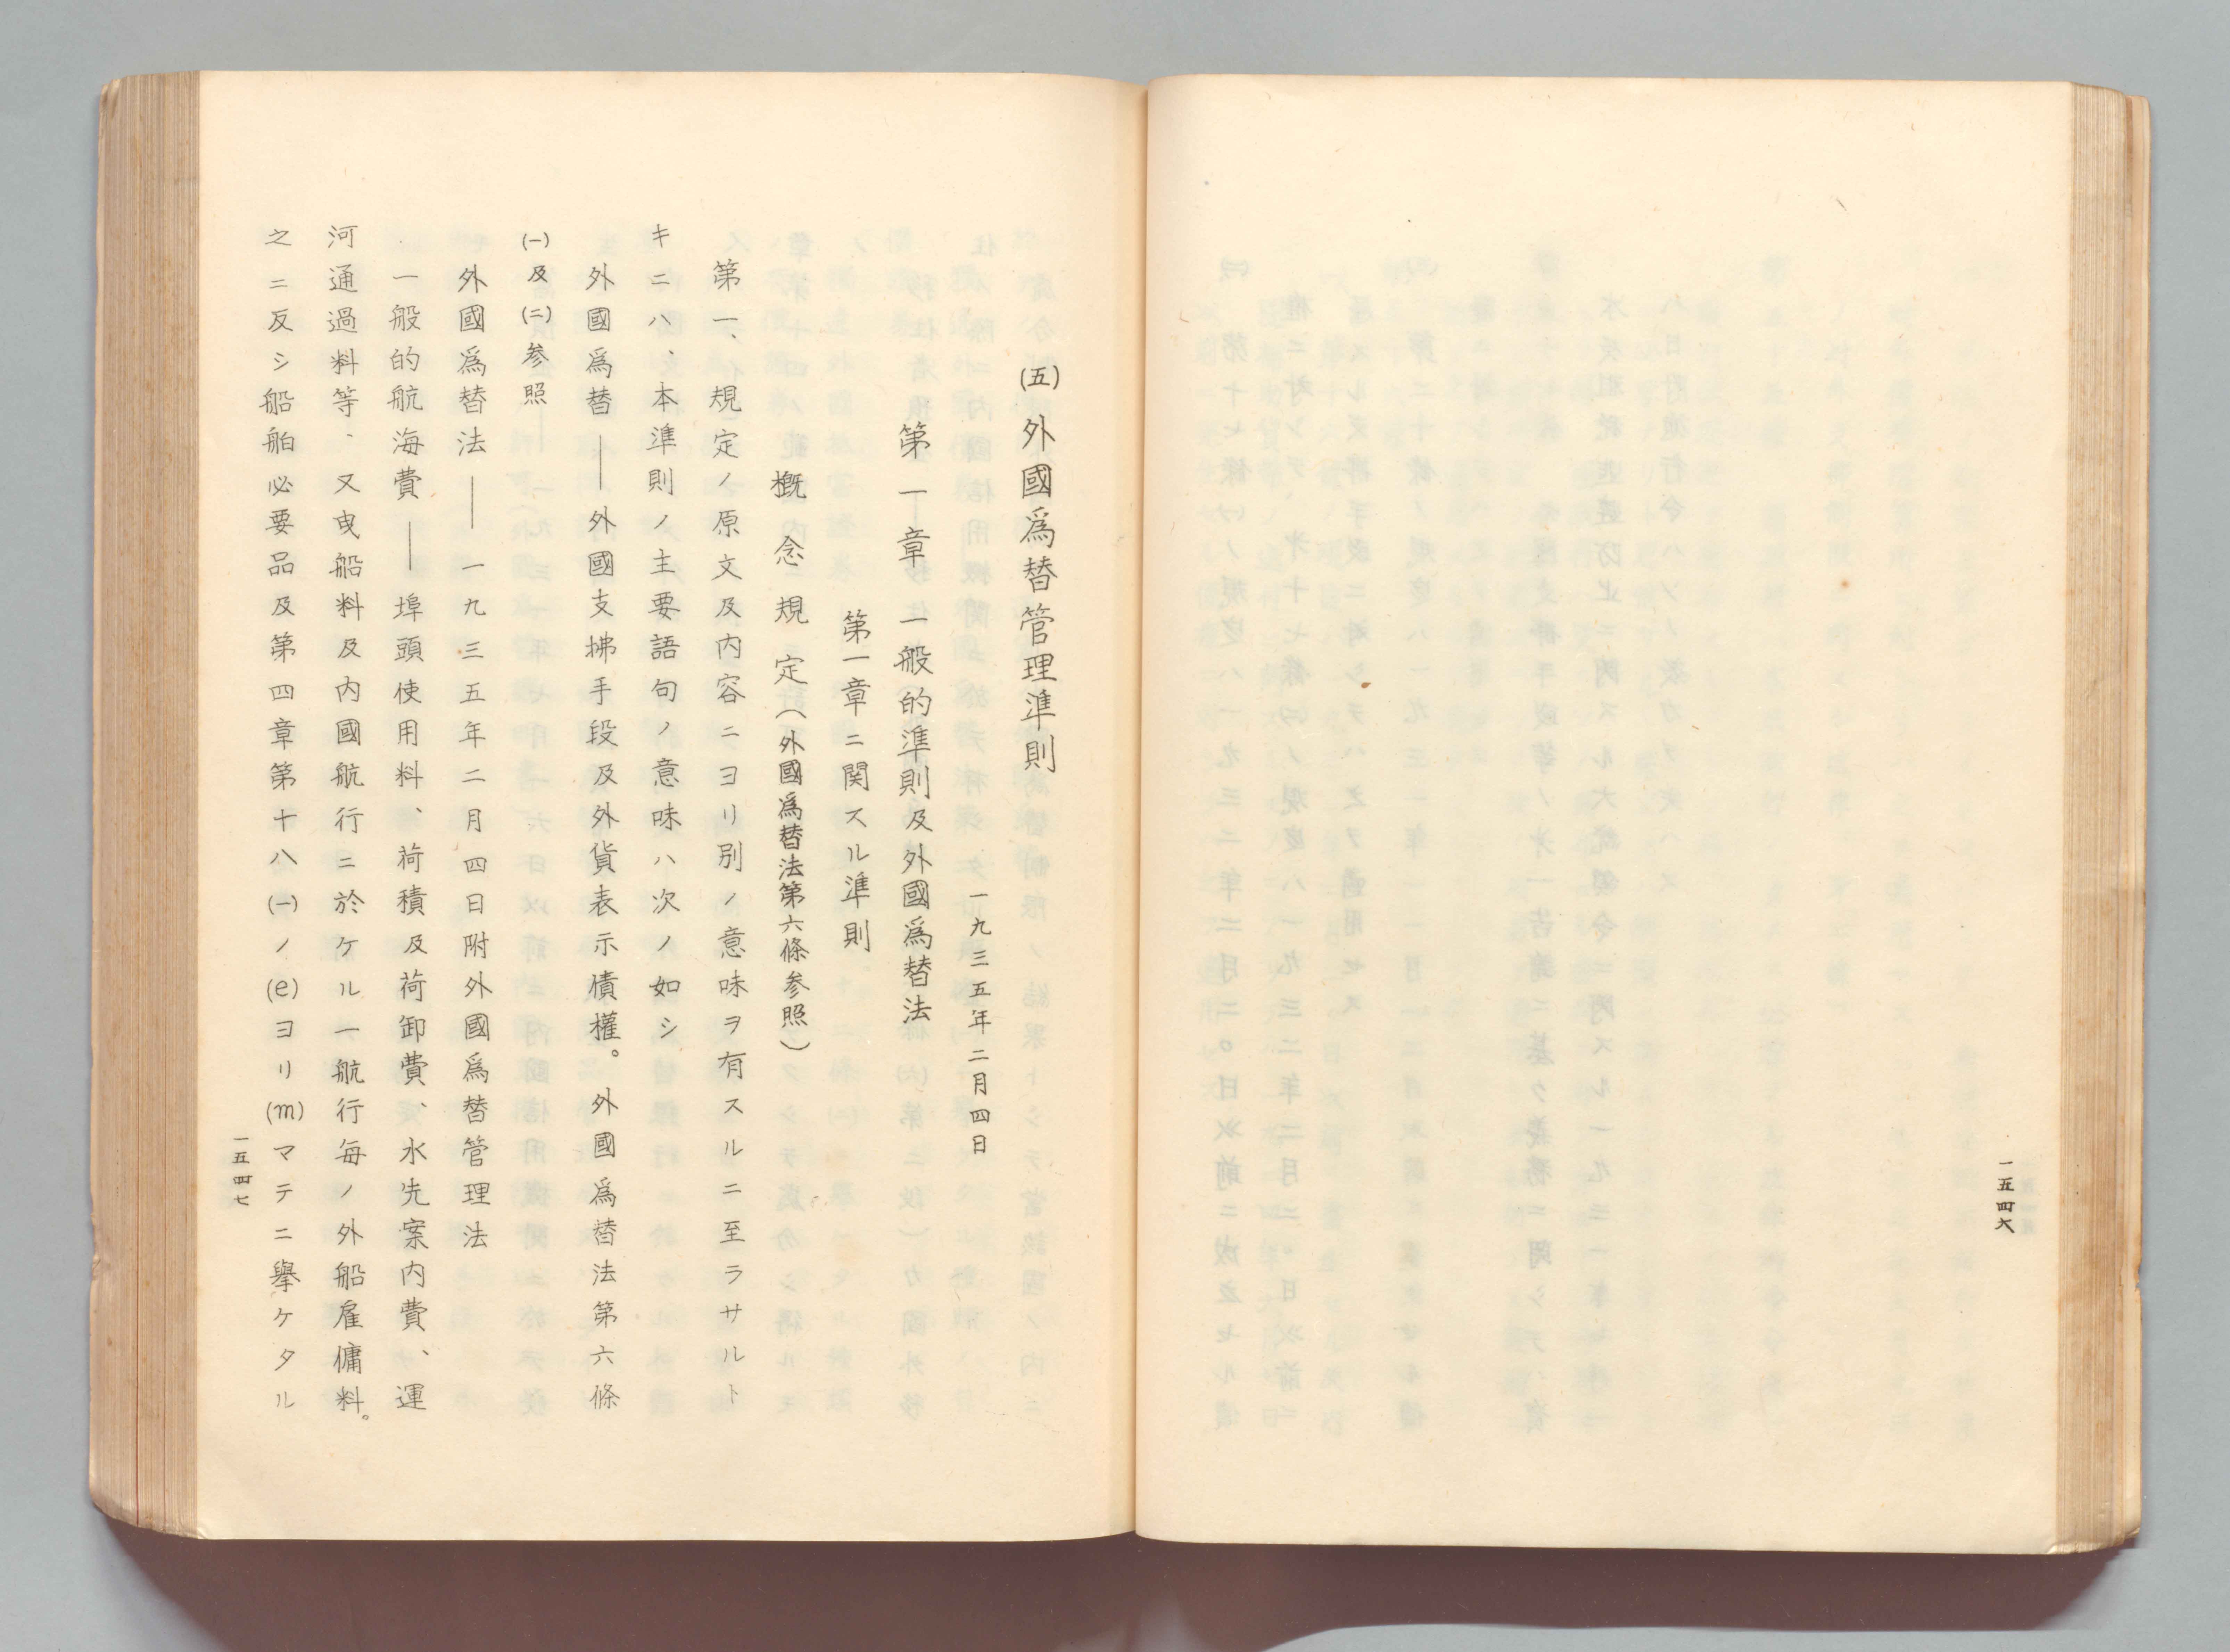 一五四六
(五)外國爲替管理準則
一九三五年二月四日
第一章 一般的準則及外國爲替法
第一章ニ関スル準則
概念規定(外國爲替法第六條参照)
第一、規定ノ原文及内容ニヨリ別ノ意味ヲ有スルニ至ラサルト
キニハ、本準則ノ主要語句ノ意味ハ次ノ如シ
外國爲替——外國支拂手段及外貨表示債權。外國爲替法第六條
(一)及(二)参照
外國爲替法——一九三五年二月四日附外國爲替管理法
一般的航海費——埠頭使用料、荷積及荷卸費、水先案内費、運
河通過料等、又曳船料及内國航行ニ於ケル一航行毎ノ外船雇傭料。
之ニ反シ船舶必要品及第四章第十八(一)ノ(e)ヨリ(m)マテニ擧ケタル
一五四七